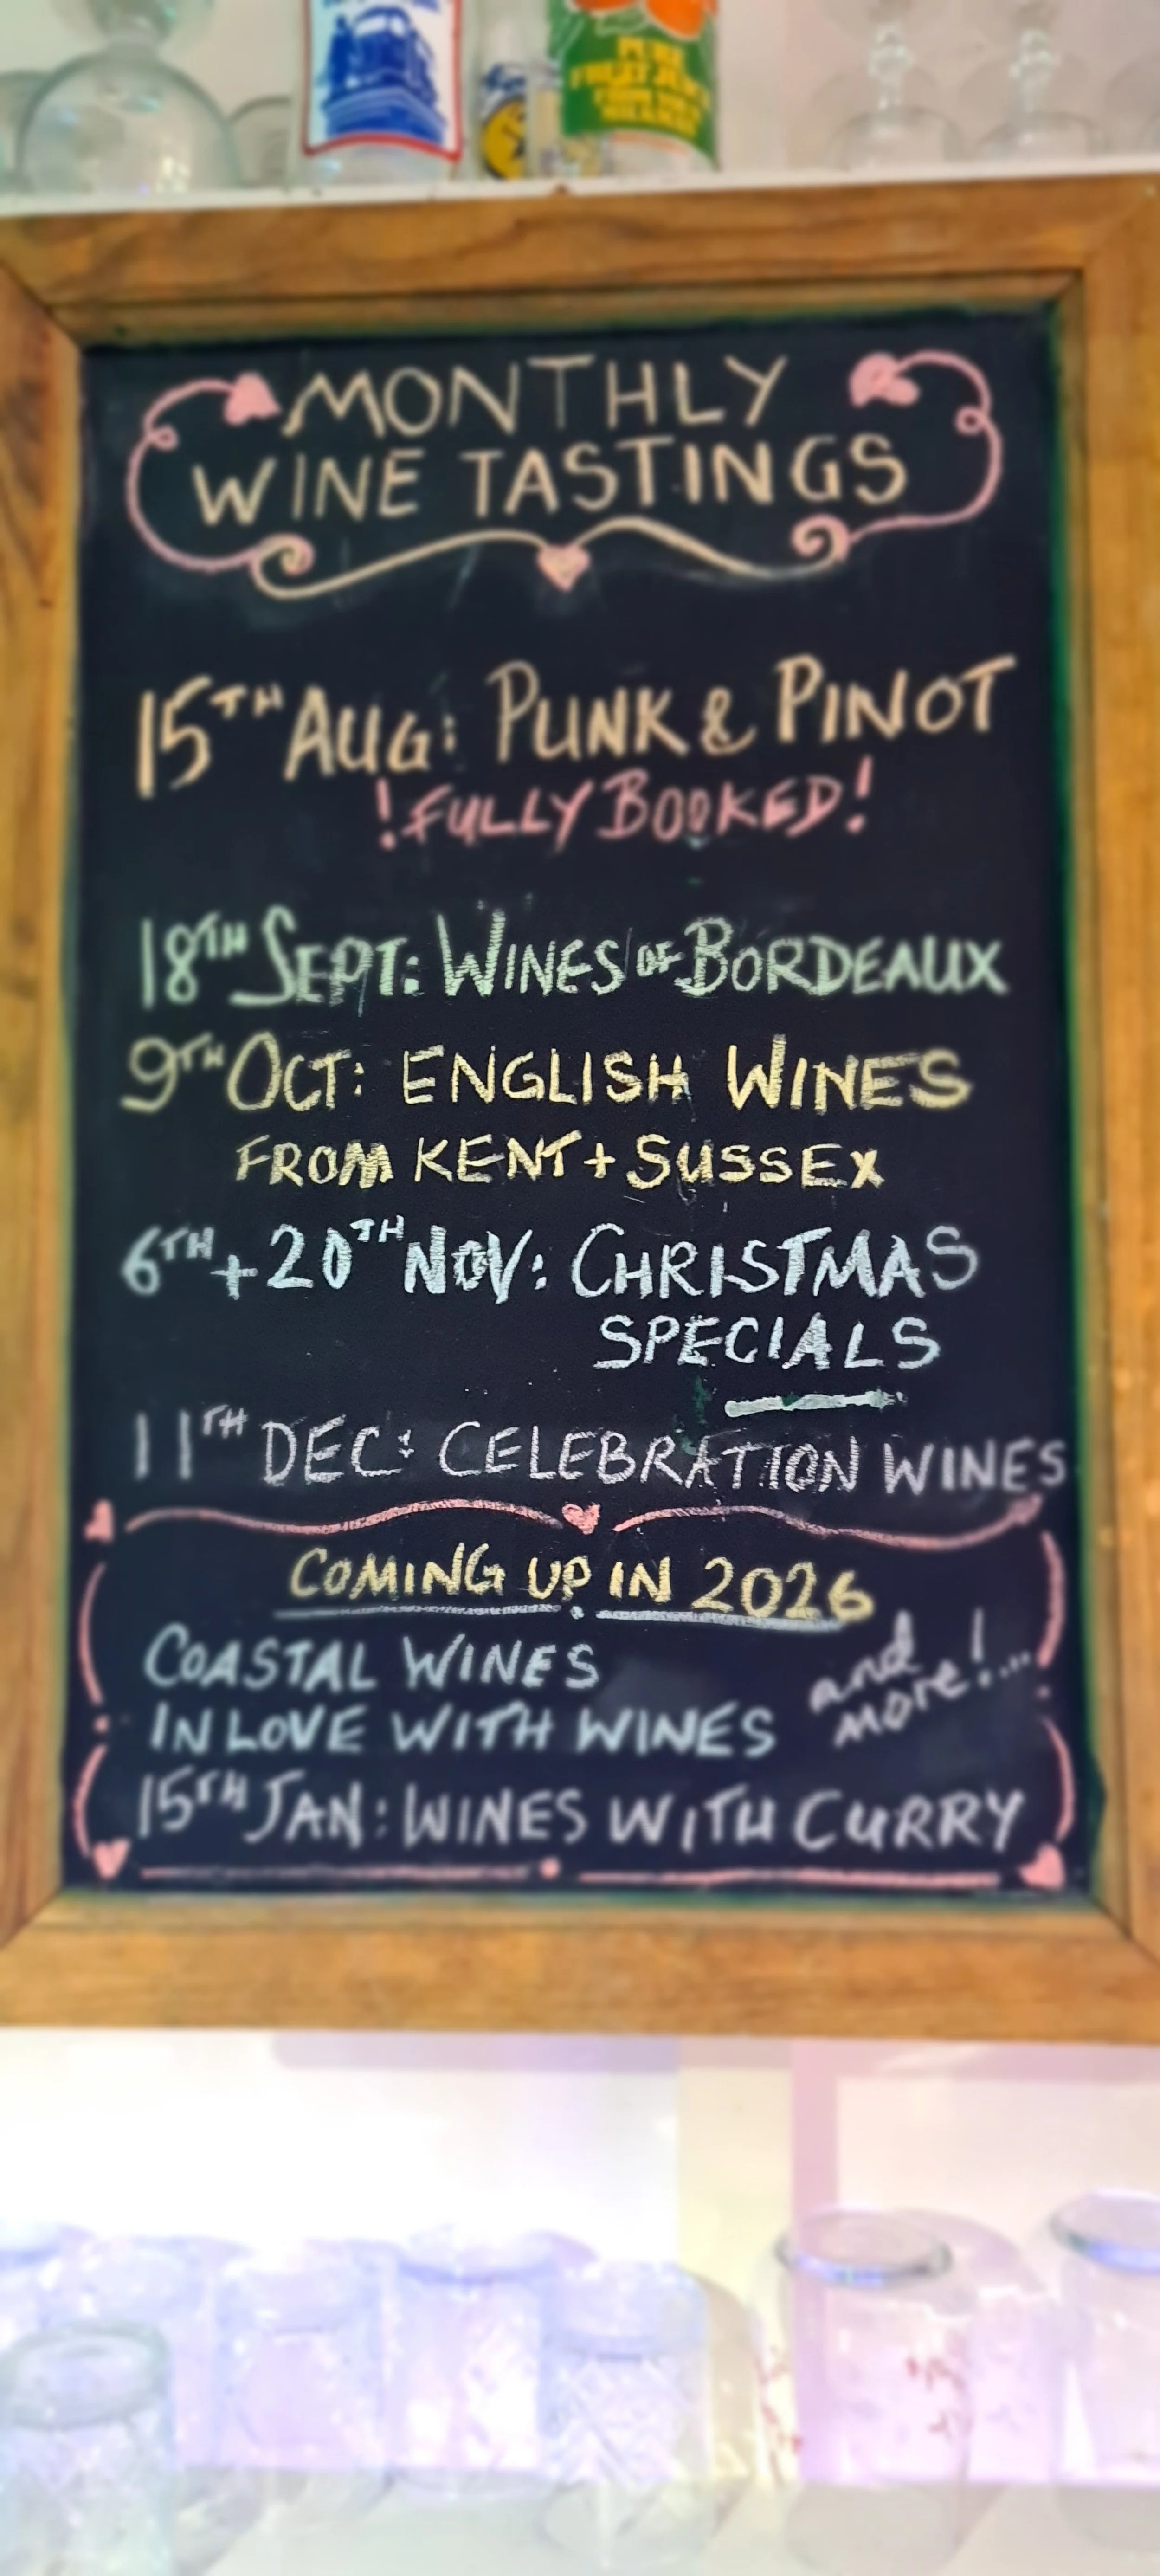 PURE
FRUIT JUICE
MONTHLY
WINE TASTINGS
15TH AUG: PUNK & PINOT
! FULLY BOOKED!
18TH SEPT: WINES OF BORDEAUX
9TH OCT: ENGLISH WINES
FROM KENT + SUSSEX
6TH + 20TH NOV: CHRISTMAS
SPECIALS
11TH DEC: CELEBRATION WINES
COMING UP IN 2026
COASTAL WINES
and
more!...
IN LOVE WITH WINES
15TH JAN: WINES WITH CURRY